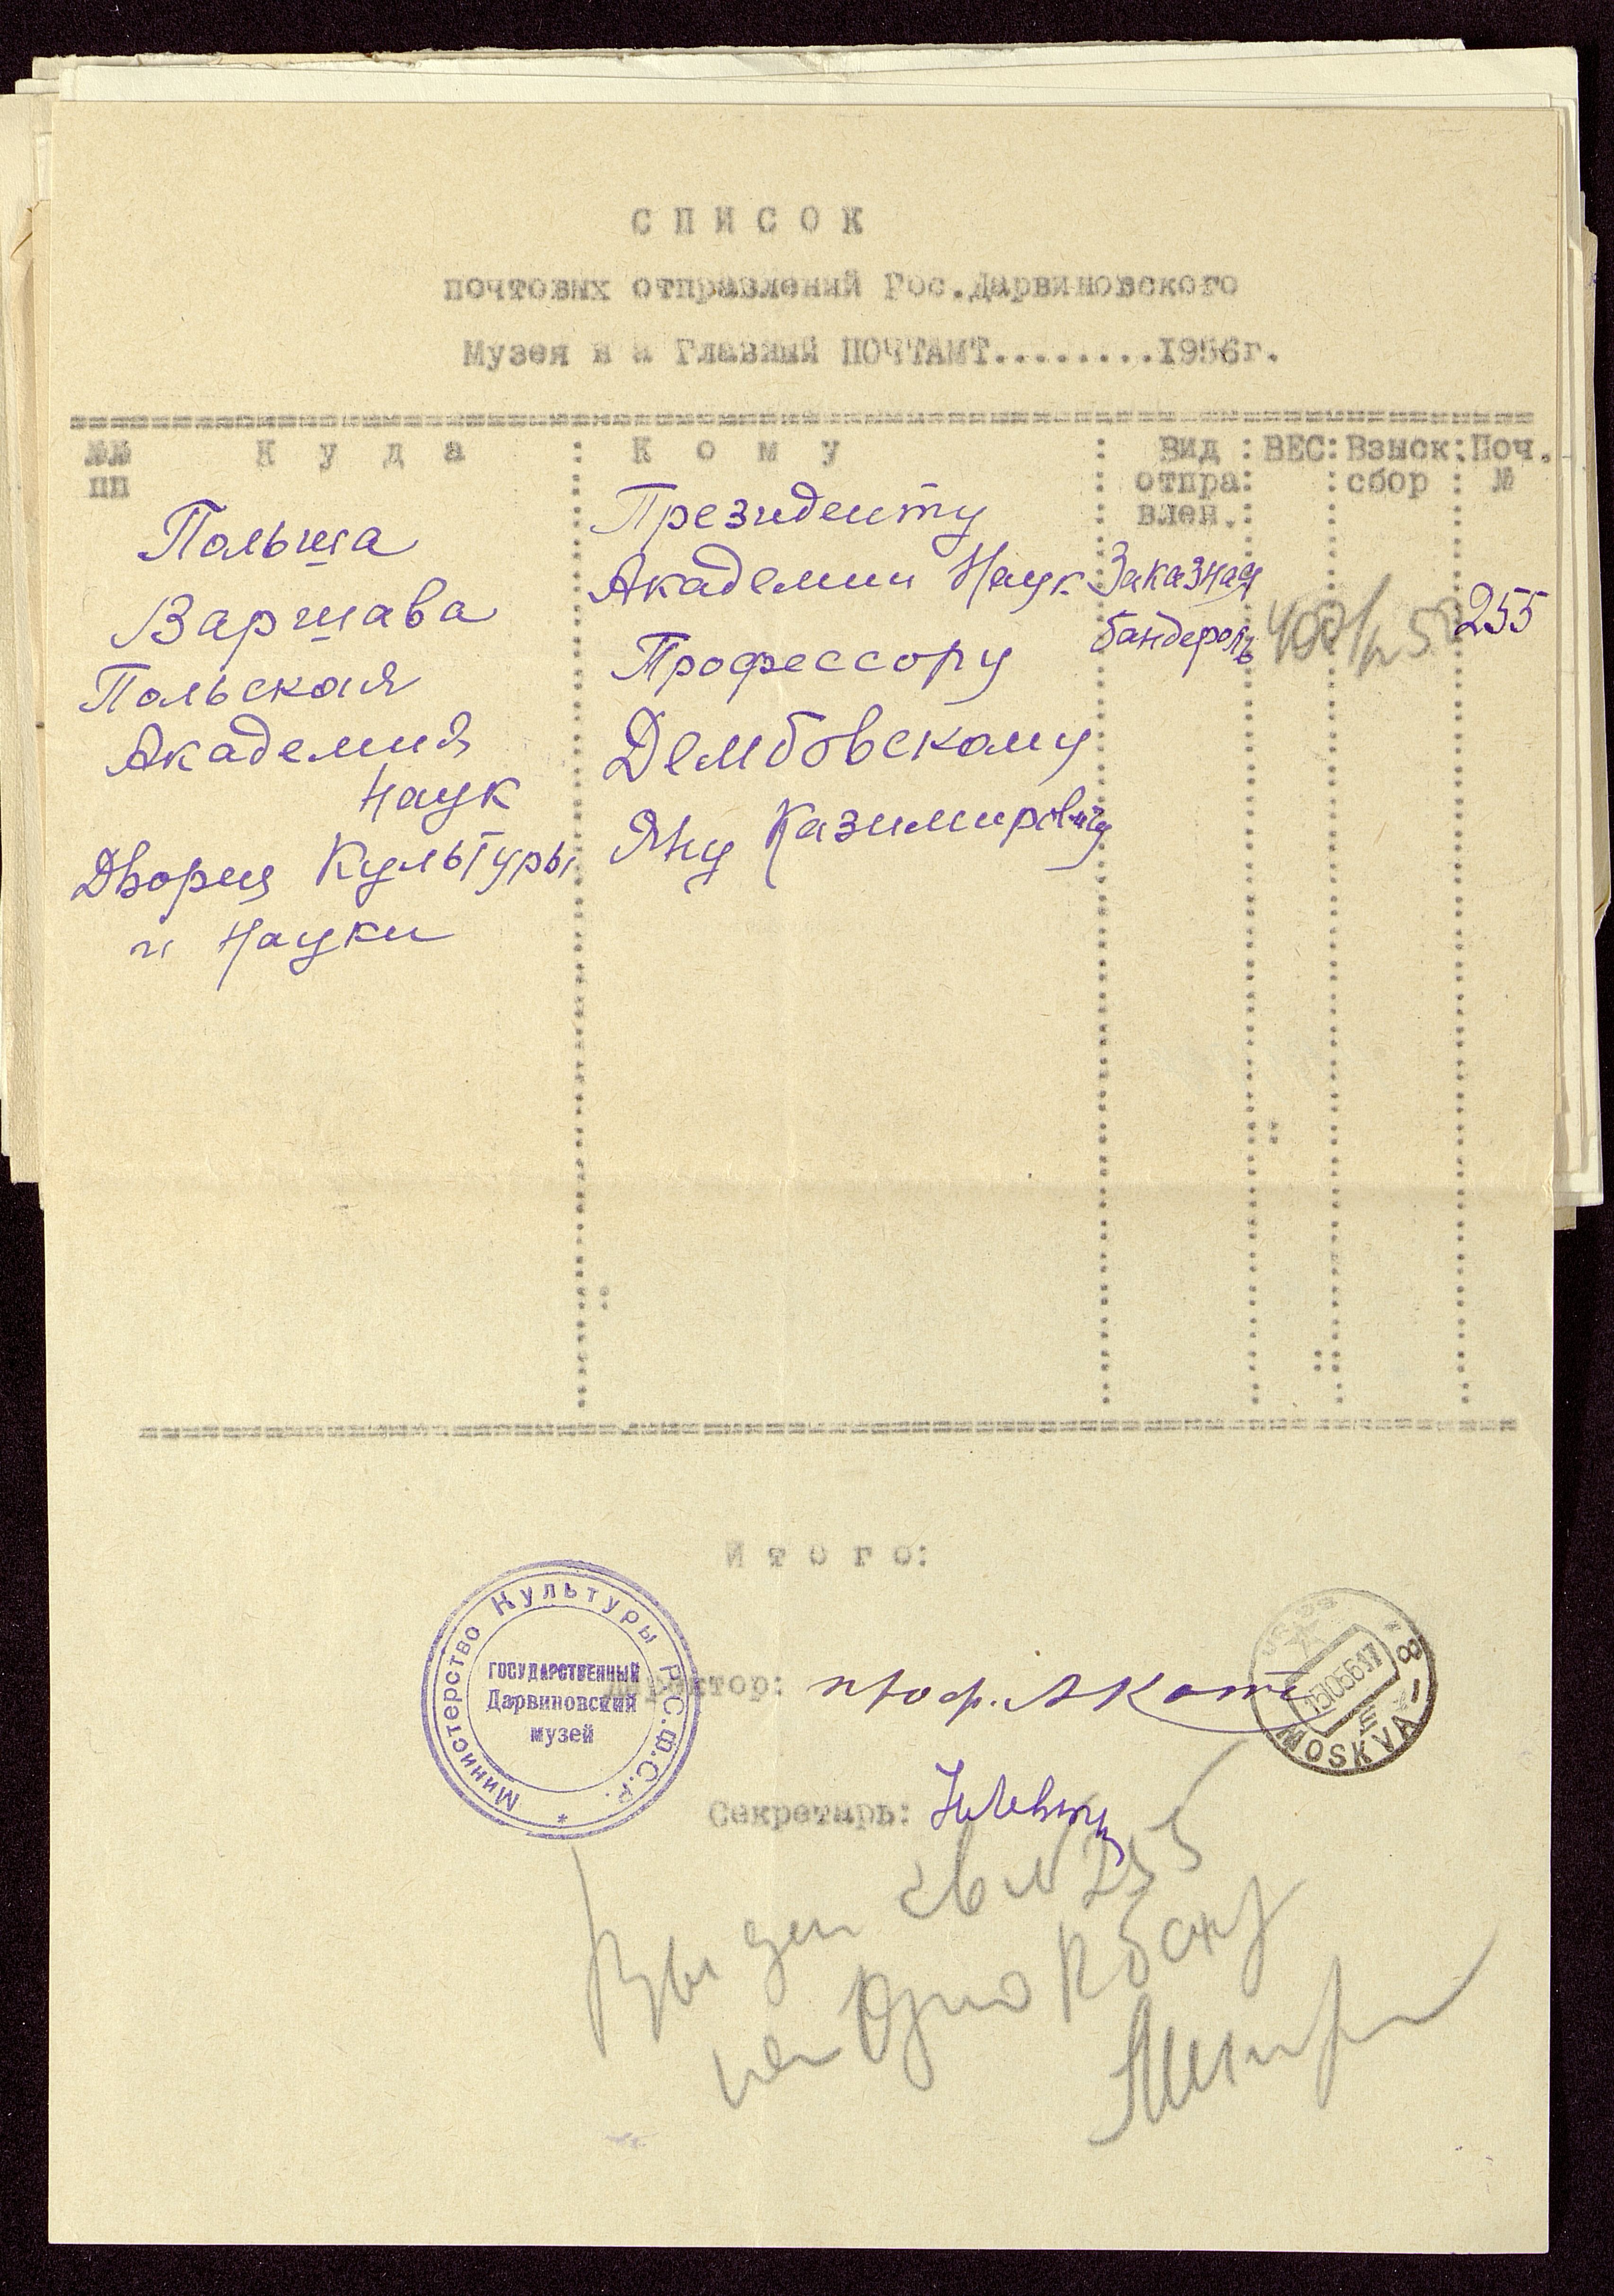 СПИСОК
почтовых отправлений Гос.Дарвиновского
Музея н а Главный ПОЧТАМТ.........1956г.
№№ Куда : Кому : Вид : ВЕС: Взыск: Поч.
пп отпра: сбор : №
влен.:
Польша
Варшава
Польская
Академия
Наук
Дворец Культуры
и Науки
Президенту
Академии Наук
Профессору
Дембовскому
Яну Казимировичу
Заказная
бандероль
255
Итого:
Министерство Культуры Р.С.Ф.С.Р.
ГОСУДАРСТВЕННЫЙ
Дарвиновский
музей
Директор: проф. АКотс
Секретарь:
MOSKVA
№ 255